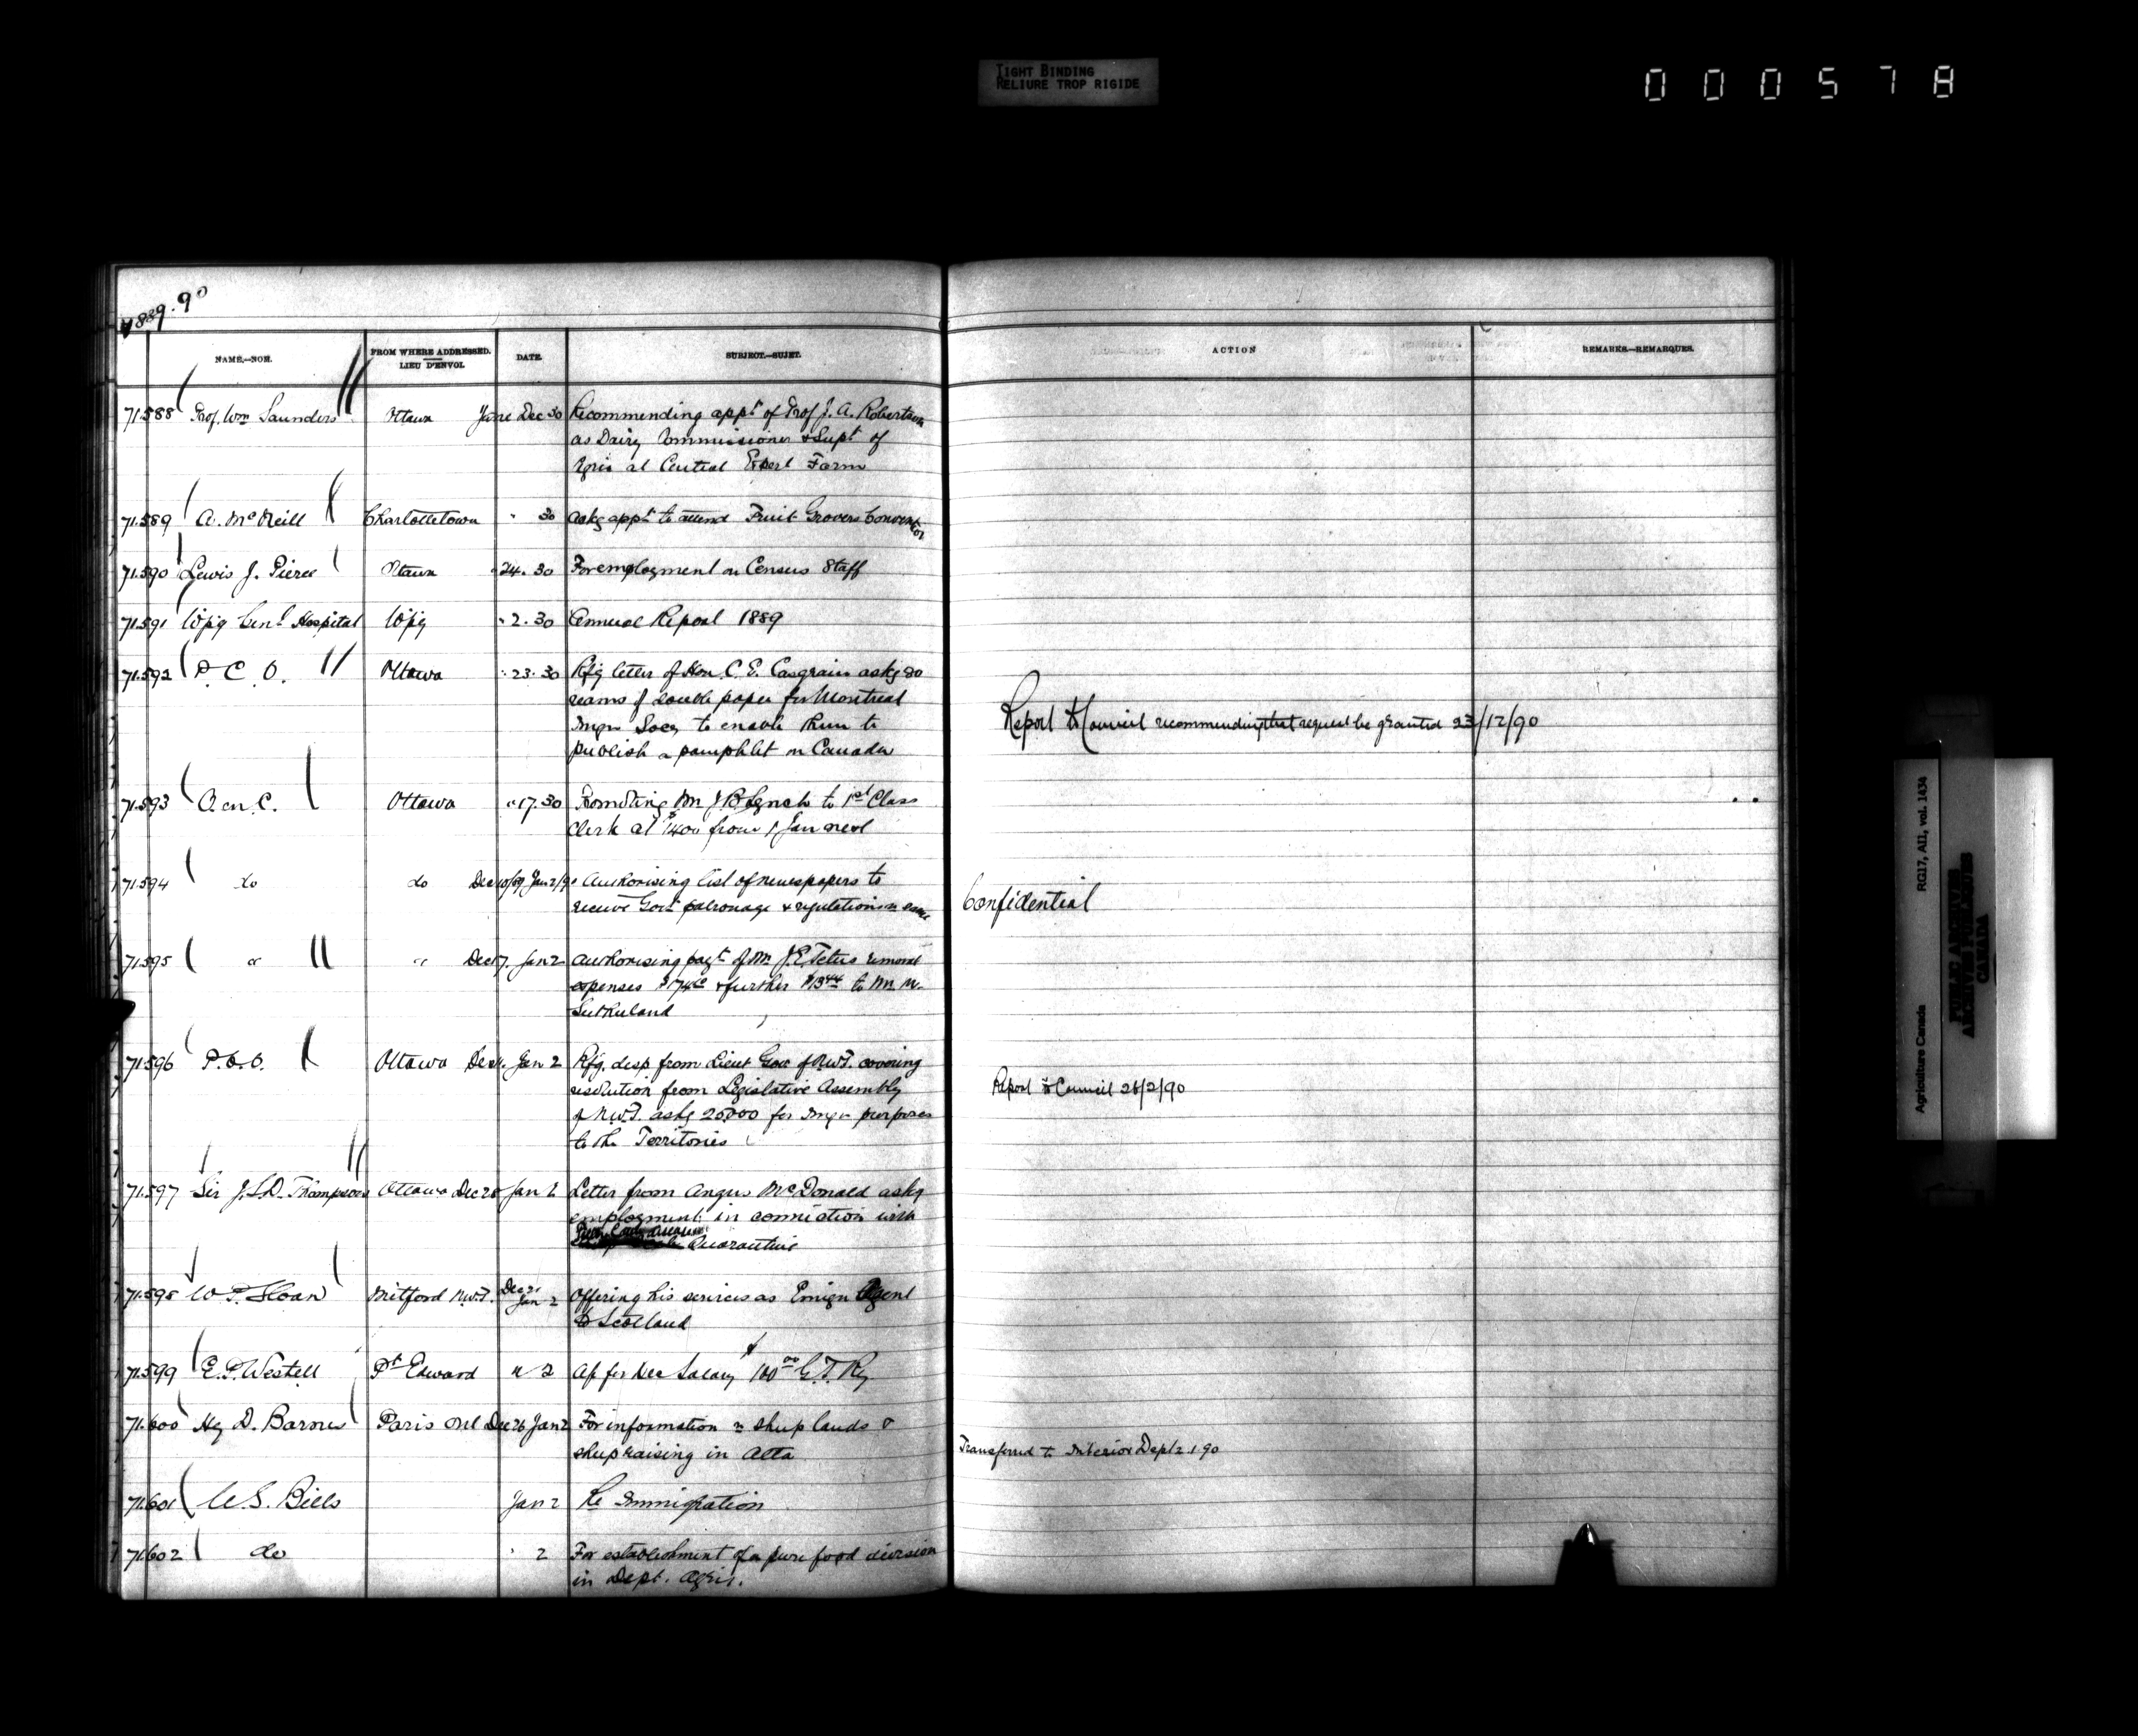 TIGHT BINDING
RELIURE TROP RIGIDE
000578
1889.90
NAME.—NOM.
FROM WHERE ADDRESSED.
LIEU D'ENVOI.
DATE.
SUBJECT.—SUJET.
ACTION
REMARKS.—REMARQUES.
71.588 Prof. Wm Saunders Ottawa Dec 30 Recommending appt of Prof J. A. Robertson
as Dairy Commissioner & Supt of
Agric at Central Exptl Farm
71.589 A. McNeill Charlottetown " 30 askg appt to attend Fruit Growers Convention
71.590 Lewis J. Pierce Ottawa 24. 30 For employment on Census Staff
71.591 Wpg Genl Hospital Wpg " 2. 30 Annual Report 1889
71.592 P. C. O. Ottawa " 23. 30 Rfg letter of Hon. C. E. Casgrain askg 20
reams of double paper for Montreal
Imgn Socy to enable them to
publish a pamphlet on Canada
Report to Council recommending that request be granted 23/12/90
71.593 O in C. Ottawa " 17. 30 Promoting Mr J. B. Lynch to 1st Class
Clerk at $1400 from 1 Jan next
71.594 do do Jan 2/90 Authorising list of newspapers to
receive Govt patronage & regulations re same
Confidential
71.595 " " Dec 17. Jan 2 authorising payt of Mr J. E. Tetu's removal
expenses & further to Mr M.
Sutherland
71.596 P.C.O. Ottawa Jan 2 Rfg. desp from Lieut Gov of N.W.T. covering
resolution from Legislative Assembly
of N.W.T. askg 20,000 for Imgn purposes
to the Territories
Report to Council 28/2/90
71.597 Sir J. S. D. Thompson Ottawa Dec 28 Jan 2 Letter from Angus McDonald askg
employment in connection with
Quarantine
71.598 W P. Sloan Mitford N.W.T. Jan 2 Offering his services as Emign Agent
to Scotland
71.599 E. P. Westell Pt Edward " 2 Ap for Dec Salary $100.00 G. T. Ry
71.600 Hy D. Barnes Paris Dec 26 Jan 2 For information re sheep lands &
sheep raising in Alta
Transferred to Interior Dept 2.1.90
71.601 Jan 2 Re Immigration
71.602 do " 2 For establishment of a pure food division
in Dept. Agric.
Agriculture Canada RG17, AI1, vol. 1434
PUBLIC ARCHIVES
ARCHIVES PUBLIQUES
CANADA